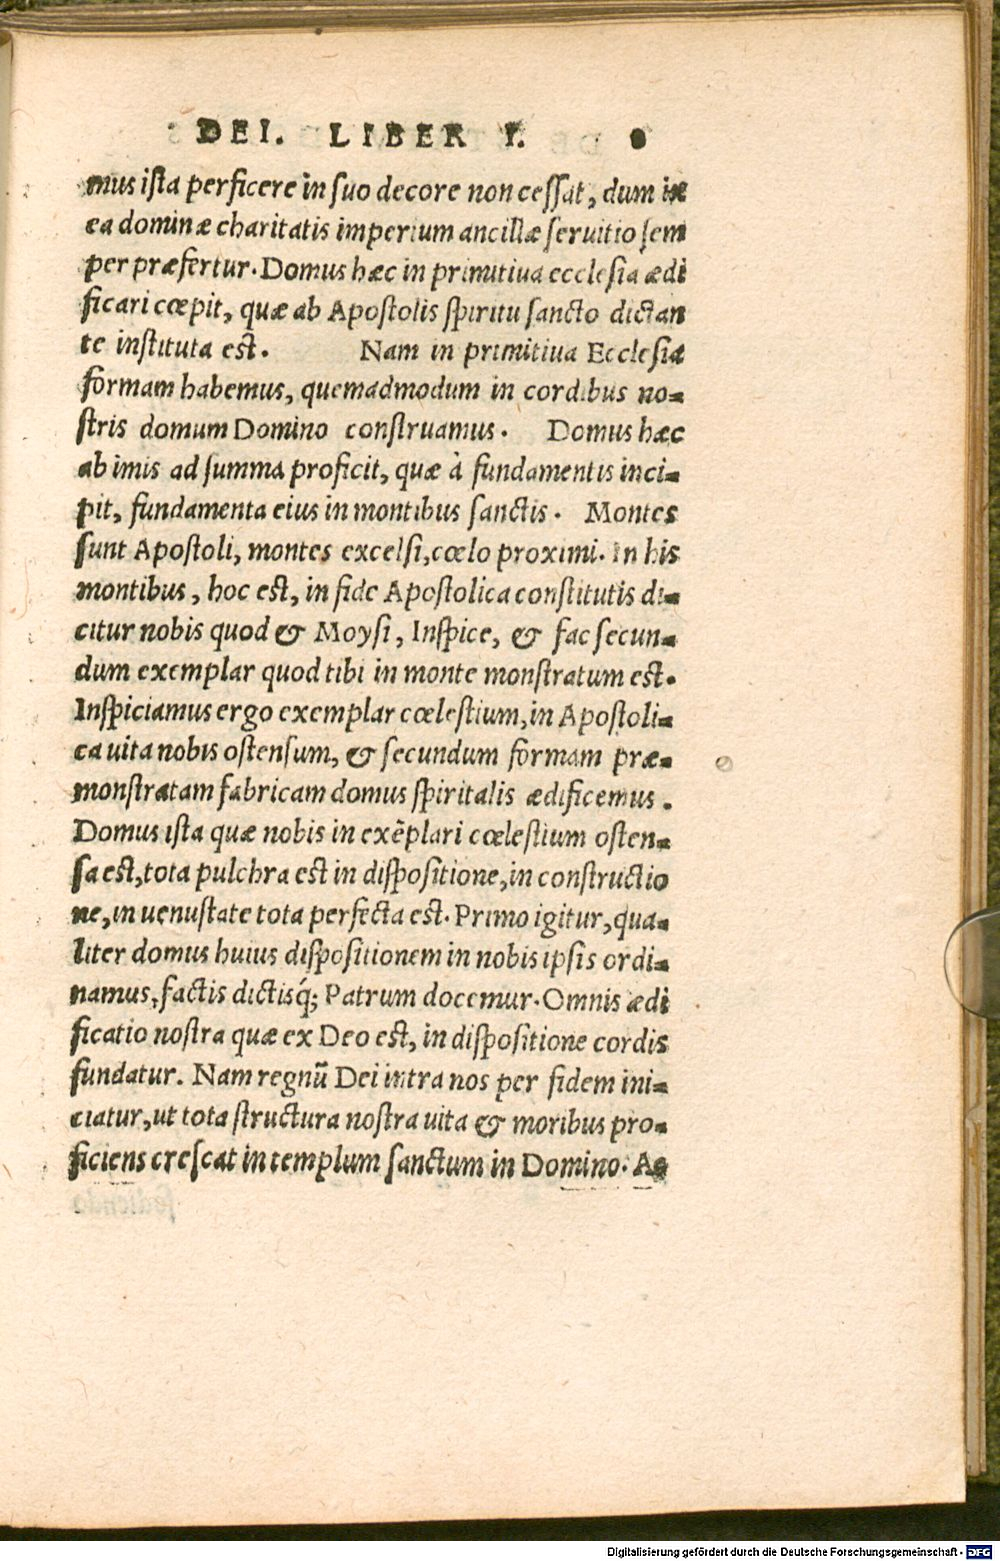 DEI. LIBER I.
mus ista perficere in suo decore non cessat, dum in
ea dominæ charitatis imperium ancillæ seruitio sem
per præfertur. Domus hæc in primitiua ecclesia ædi
ficari cœpit, quæ ab Apostolis spiritu sancto dictan
te instituta est. Nam in primitiua Ecclesia
formam habemus, quemadmodum in cordibus no-
stris domum Domino construamus. Domus hæc
ab imis ad summa proficit, quæ à fundamentis inci-
pit, fundamenta eius in montibus sanctis. Montes
sunt Apostoli, montes excelsi, cœlo proximi. In his
montibus, hoc est, in fide Apostolica constitutis di-
citur nobis quod & Moysi, Inspice, & fac secun-
dum exemplar quod tibi in monte monstratum est.
Inspiciamus ergo exemplar cœlestium, in Apostoli-
ca uita nobis ostensum, & secundum formam præ-
monstratam fabricam domus spiritalis ædificemus.
Domus ista quæ nobis in exẽplari cœlestium osten-
sa est, tota pulchra est in dispositione, in constructio
ne, in uenustate tota perfecta est. Primo igitur, qua-
liter domus huius dispositionem in nobis ipsis ordi-
namus, factis dictisq́; Patrum docemur. Omnis ædi
ficatio nostra quæ ex Deo est, in dispositione cordis
fundatur. Nam regnũ Dei intra nos per fidem ini-
ciatur, ut tota structura nostra uita & moribus pro-
ficiens crescat in templum sanctum in Domino. Ac
Digitalisierung gefördert durch die Deutsche Forschungsgemeinschaft - DFG